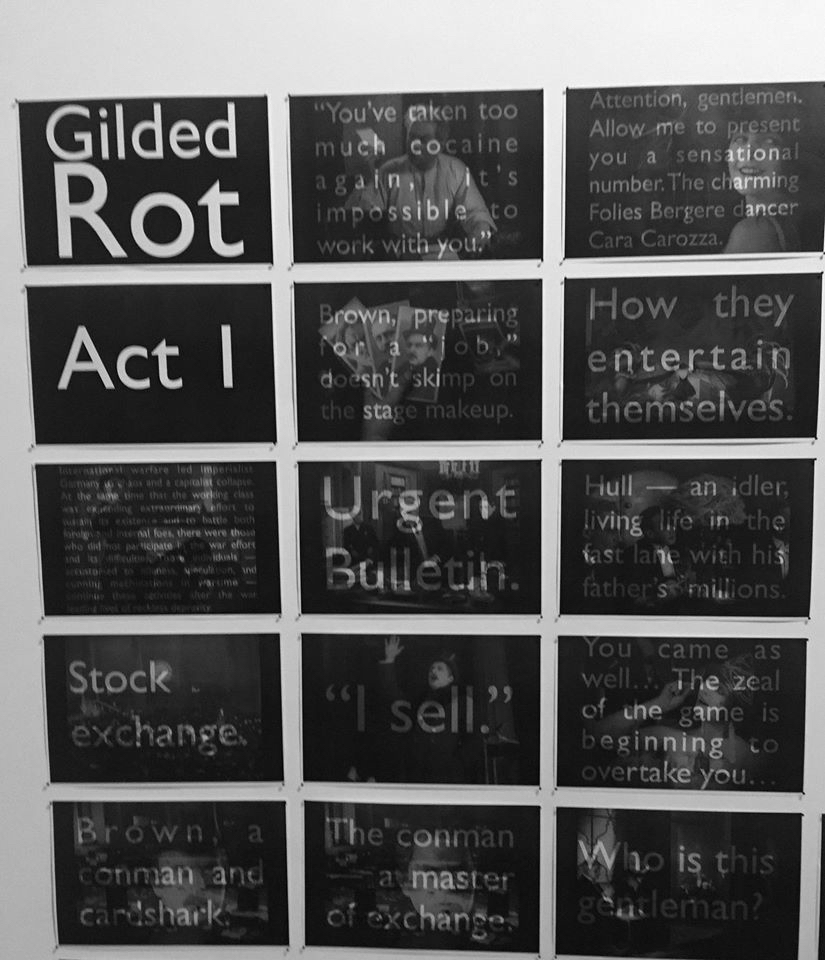 Gilded
Rot
Act I
International warfare led Imperialist
Germany to chaos and a capitalist collapse.
At the same time that the working class
was expending extraordinary effort to
sustain its existence and to battle both
foreign and internal foes, there were those
who did not participate in the war effort
and its difficulties. individuals —
accustomed to idleness, speculation, and
cunning machinations in wartime —
continue these activities after the war
leading lives of reckless depravity.
Stock
exchange.
Brown, a
conman and
cardshark.
“You’ve taken too
much cocaine
again, it’s
impossible to
work with you.”
Brown, preparing
for a “job,”
doesn’t skimp on
the stage makeup.
Urgent
Bulletin.
“I sell.”
The conman
a master
of exchange.
Attention, gentlemen.
Allow me to present
you a sensational
number. The charming
Folies Bergere dancer
Cara Carozza.
How they
entertain
themselves.
Hull — an idler,
living life in the
fast lane with his
father’s millions.
You came as
well... The zeal
of the game is
beginning to
overtake you...
Who is this
gentleman?